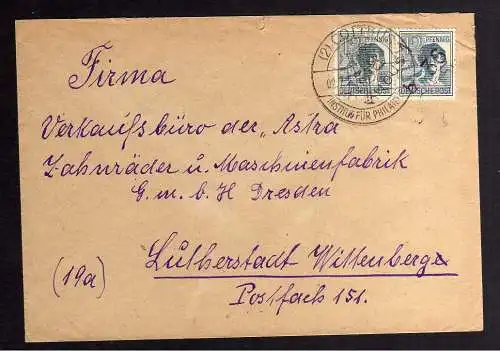 (2) COTTBUS
12 PFENNIG
DEUTSCHE POST
DEUTSCHE POST
INSTITUT FÜR
Firma
Verkaufsbüro der „Astra
Zahnräder u. Maschinenfabrik
G. m. b. H Dresden
Lutherstadt Wittenberg
(19a)
Postfach 151.